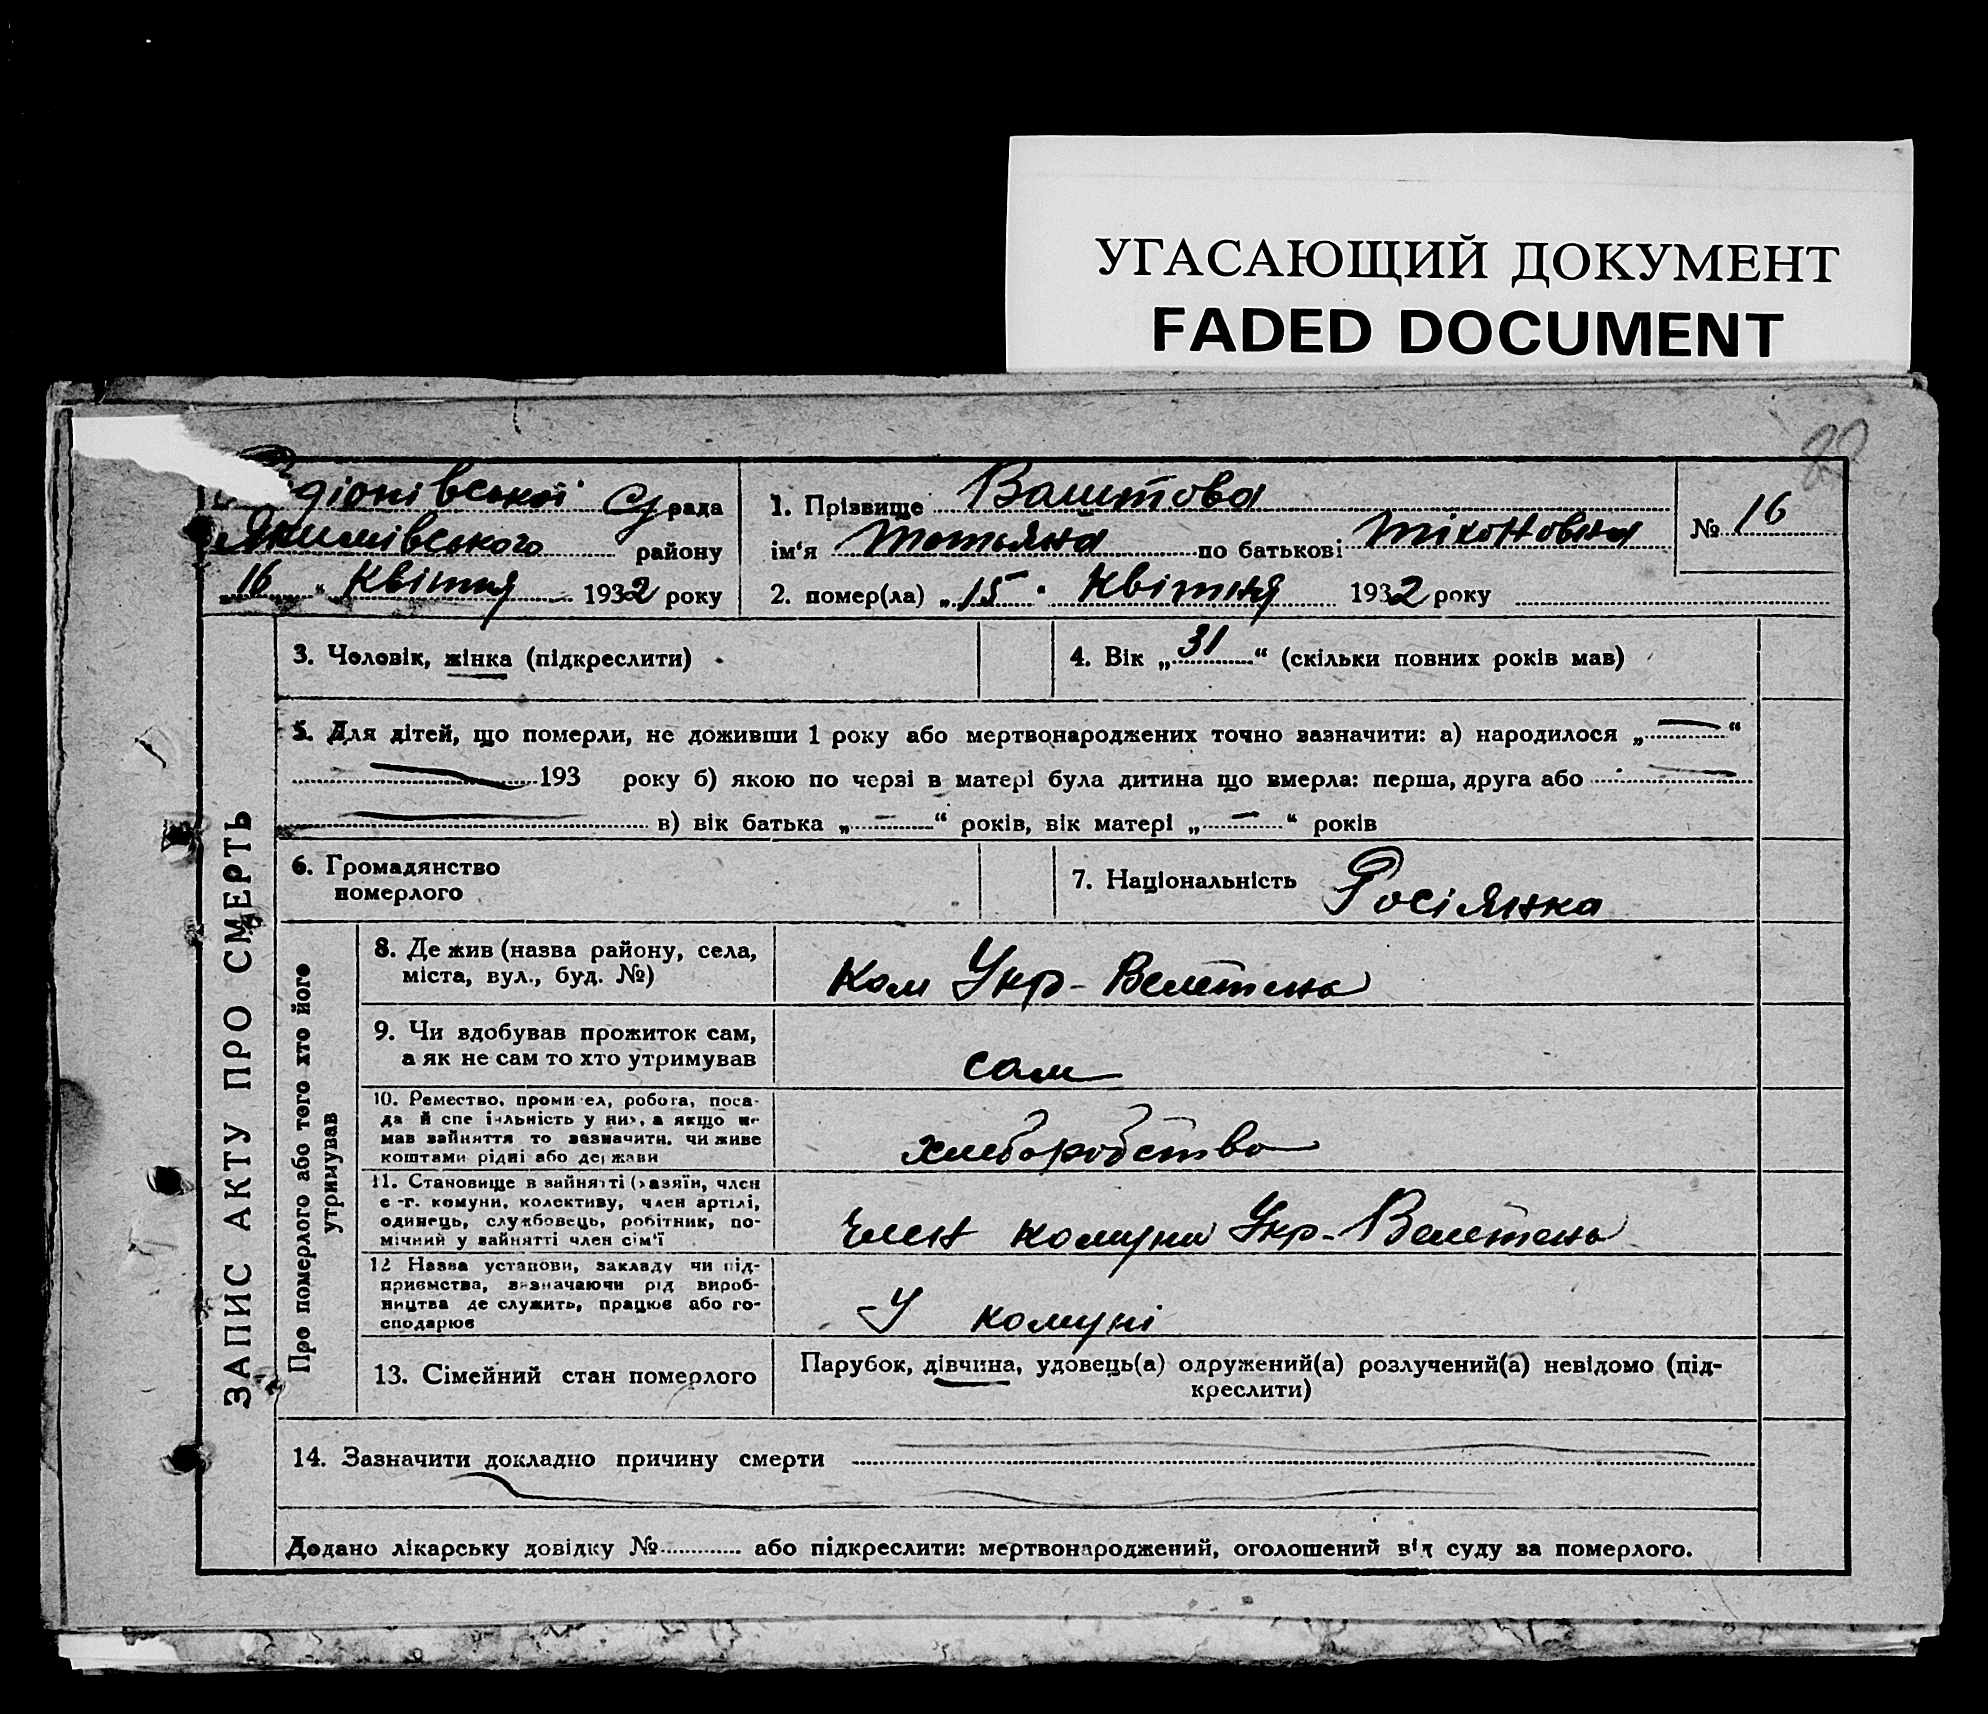 УГАСАЮЩИЙ ДОКУМЕНТ
FADED DOCUMENT
82
діонівської С/ рада
Якимівського району
16 " Квітня 1932 року
1. Прізвище Ваштова
ім'я Тотьяна по батькові Тіхоновна
№ 16
2. помер(ла) „ 15 " Квітня 1932 року
3. Чоловік, жінка (підкреслити)
4. Вік „ 31 “ (скільки повних років мав)
5. Для дітей, що померли, не доживши 1 року або мертвонароджених точно зазначити: а) народилося „ — “
— 193 року б) якою по черзі в матері була дитина що вмерла: перша, друга або —
— в) вік батька „ — “ років, вік матері „ — “ років
6. Громадянство
померлого
7. Національність Росіянка
ЗАПИС АКТУ ПРО СМЕРТЬ
Про померлого або того хто його
утримував
8. Де жив (назва району, села,
міста, вул., буд. №)
Ком Укр-
9. Чи здобував прожиток сам,
а як не сам то хто утримував
сам
10. Ремество, промисел, робота, поса-
да й спеціяльність у них, а якщо не
мав зайняття то зазначити, чи живе
коштами рідні або держави
хліборобство
11. Становище в зайнятті (хазяїн, член
с.-г. комуни, колективу, член артілі,
одинець, службовець, робітник, по-
мічний у зайнятті член сім'ї
член комуни Укр-
12 Назва установи, закладу чи під-
приємства, визначаючи рід вироб-
ництва де служить, працює або го-
сподарює
У комуні
13. Сімейний стан померлого
Парубок, дівчина, удовець(а) одружений(а) розлучений(а) невідомо (під-
креслити)
14. Зазначити докладно причину смерти
Додано лікарську довідку № або підкреслити: мертвонароджений, оголошений від суду за померлого.